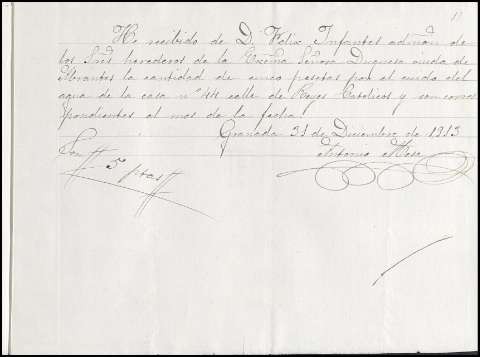 He recibido de Dn Felix Infantes admor. de
los Sres herederos de la Excma Señora Duquesa viuda de
Abrantes la cantidad de cinco pesetas por el cuido del
agua de la casa nº 44 calle de Reyes Catolicos y son corres
pondientes al mes de la fecha
Granada 31 de Diciembre de 1913
Son 5 ptas
Antonio